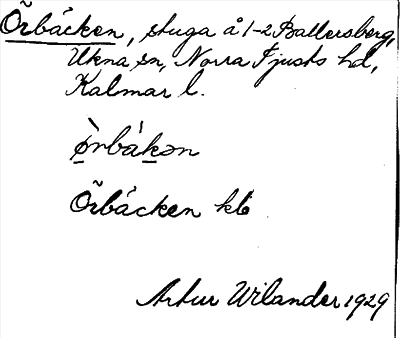 Örbäcken, stuga å 1-2 Ballersberg,
Ukna sn, Norra Tjusts hd,
Kalmar l.
ø̀rbákən
Örbäcken kb
Artur Wilander 1929